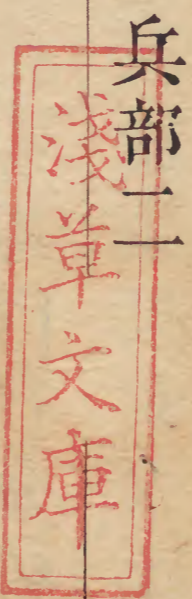 兵部二
淺草文庫